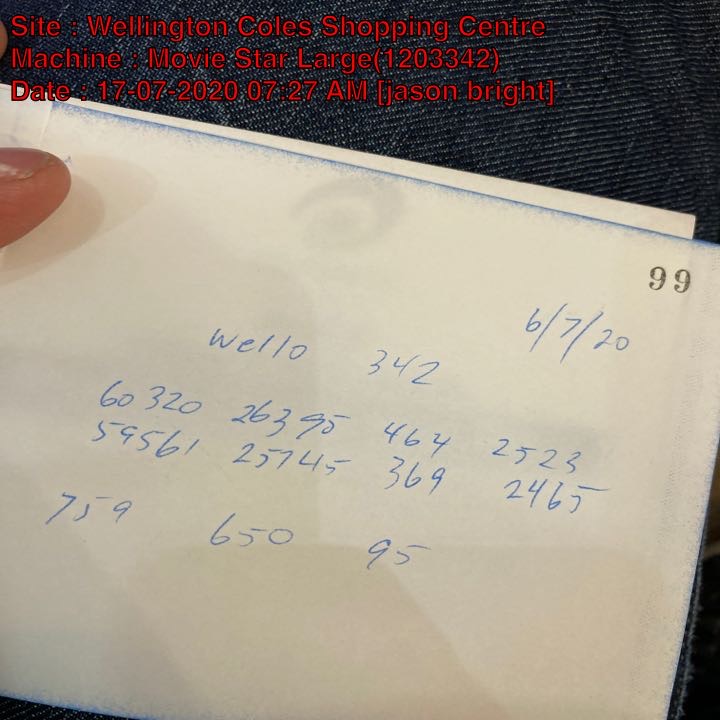 Site : Wellington Coles Shopping Centre
Machine : Movie Star Large(1203342)
Date : 17-07-2020 07:27 AM [jason bright]
99
6/7/20
Wello 342
60320 26395 464 2523
59561 25745 369 2465
759 650 95